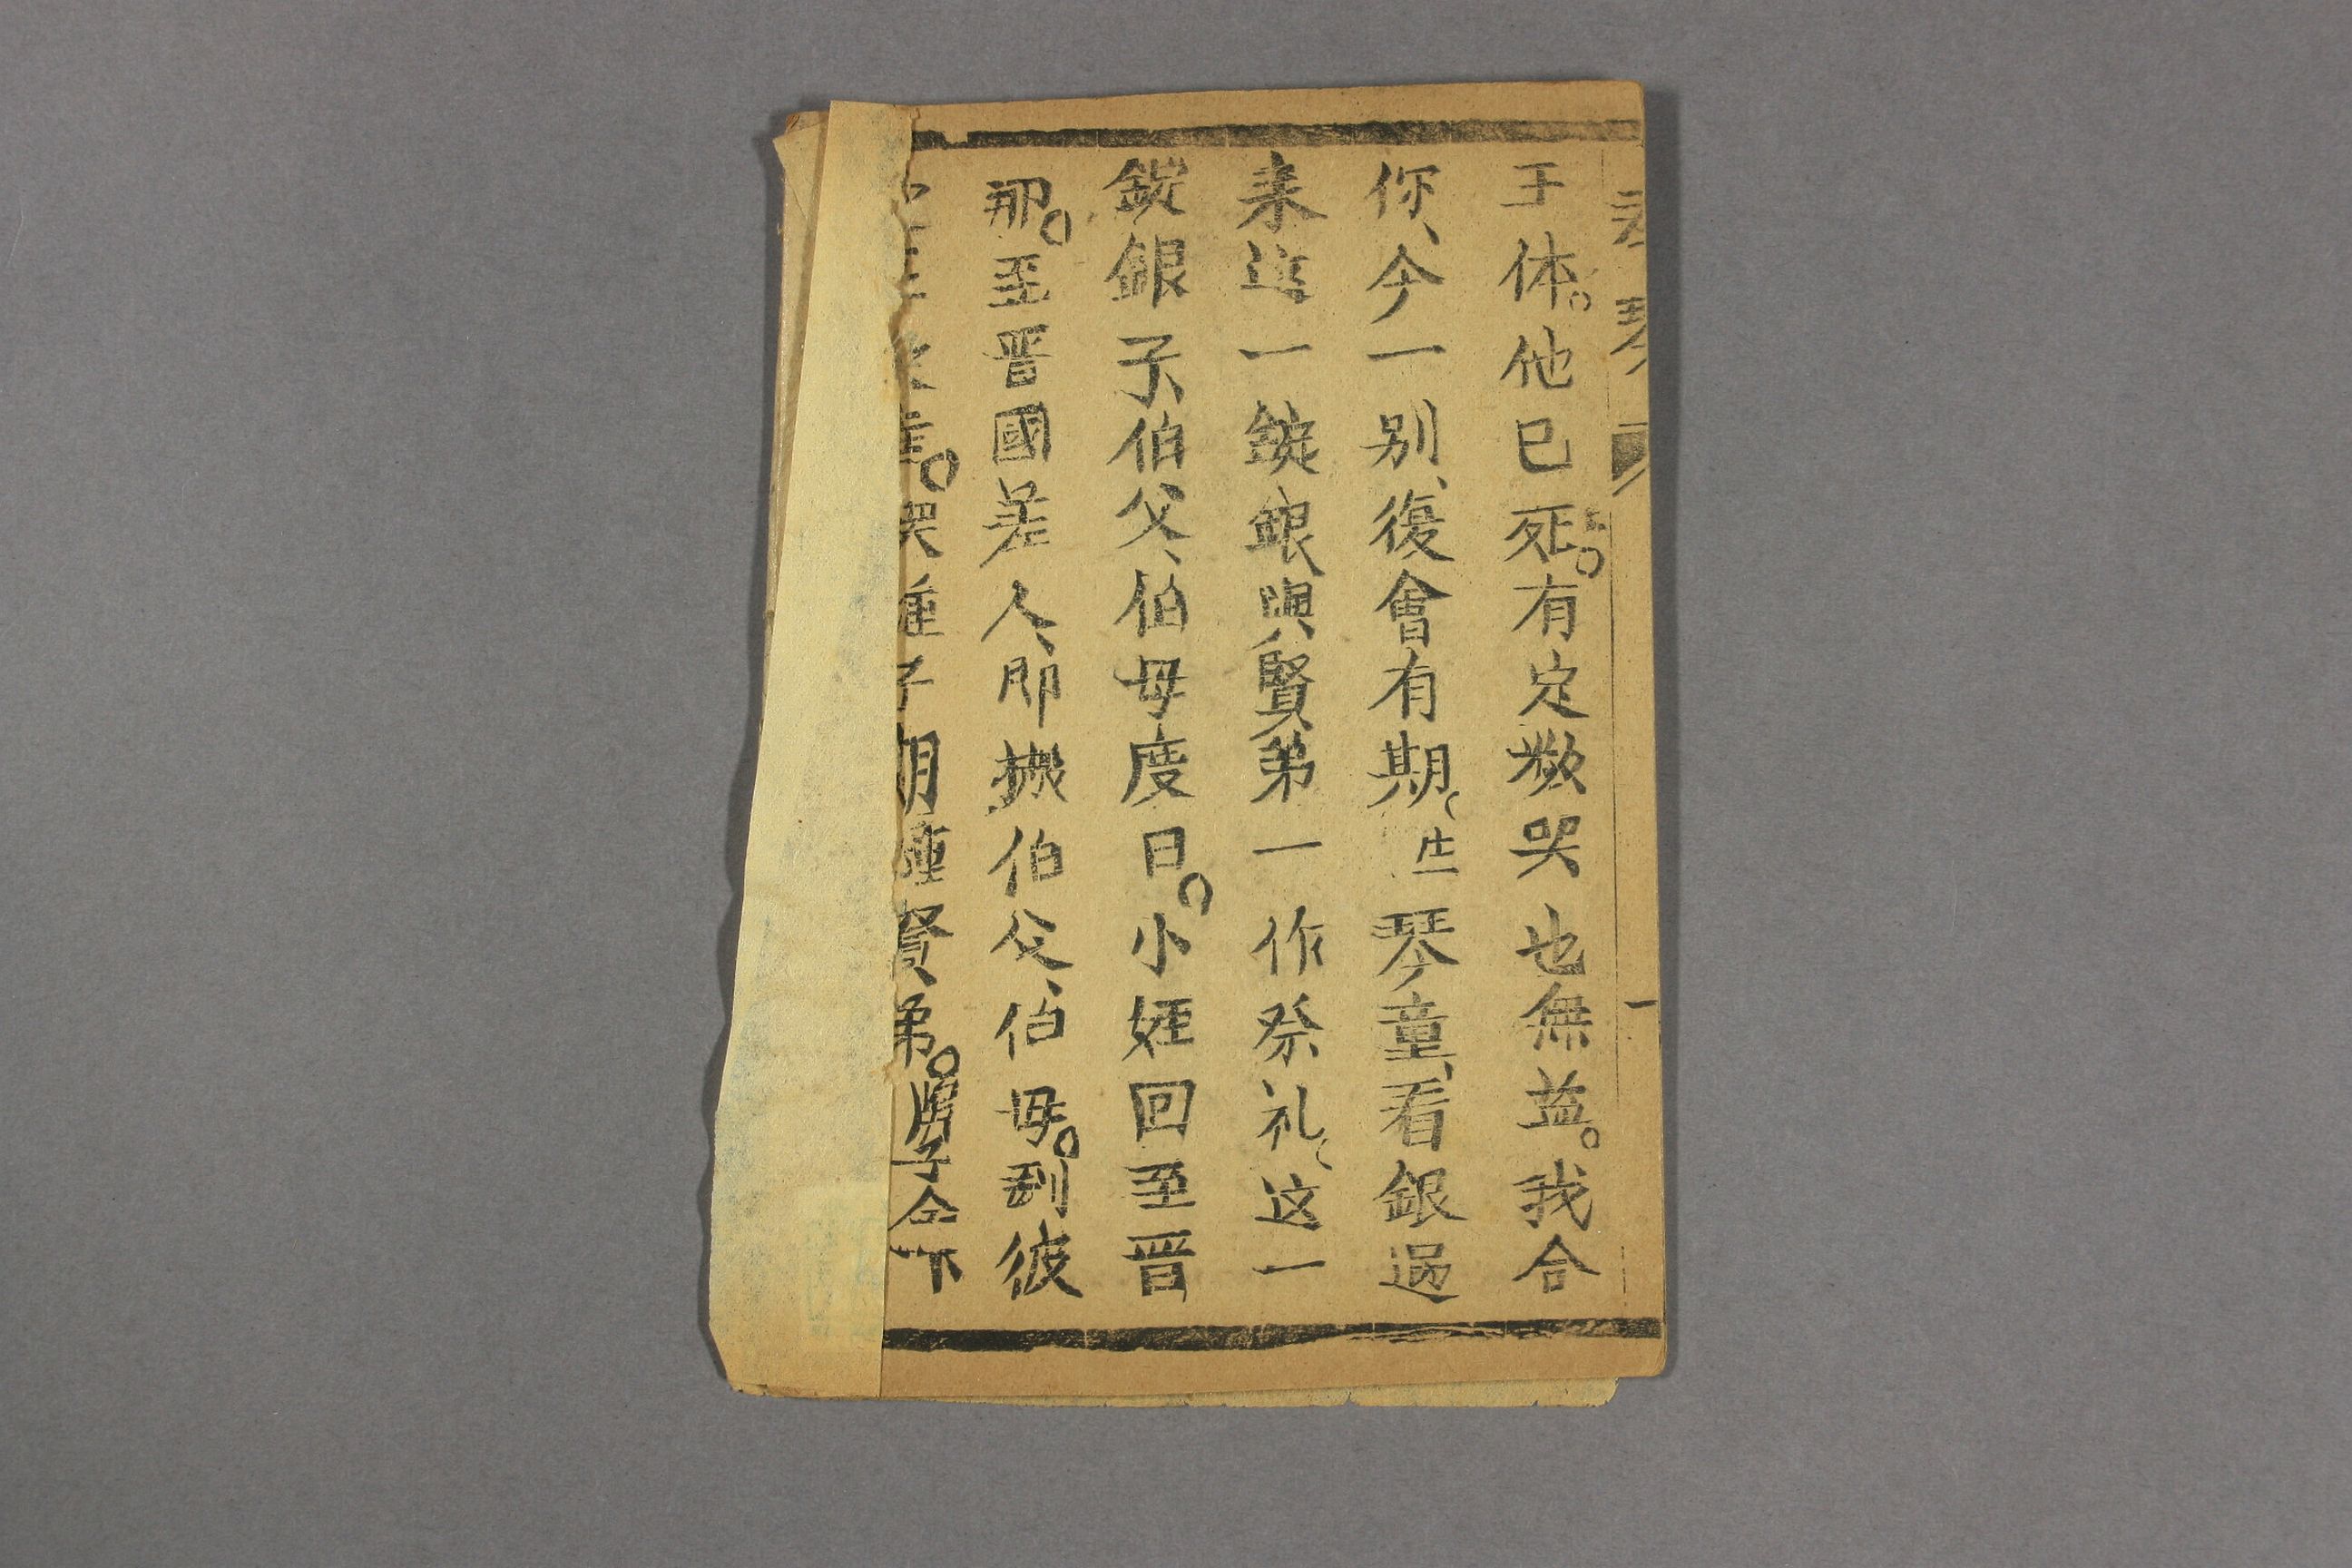 琴 一
于体。他已死。有定数哭也無益。我合
你、今一别、復會有期、生琴童、看銀過
来這一錠銀與賢弟一作祭礼、这一
錠銀子、伯父、伯母度日。小姪回至晋
那。至晋國差人、即搬伯父、伯母。到彼
。哭鍾子期鍾賢弟。